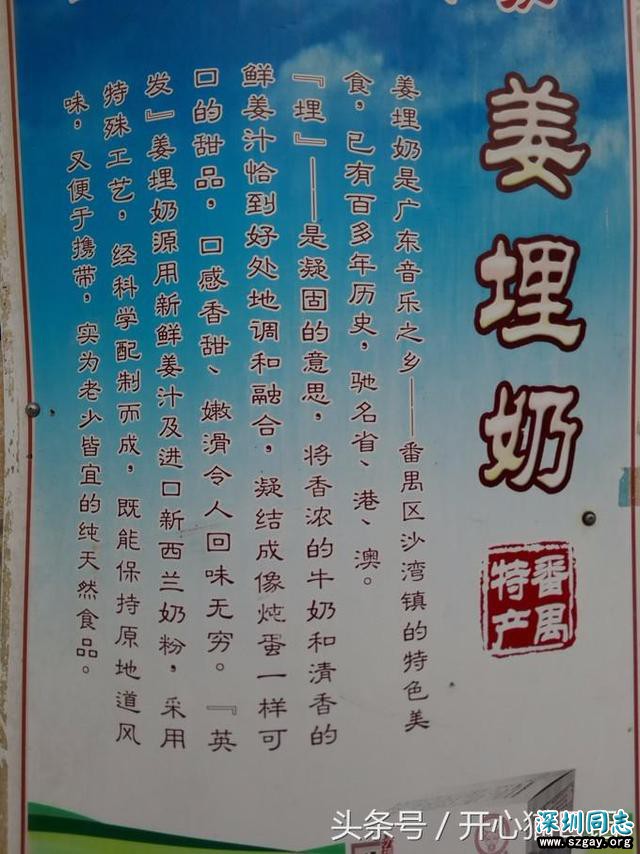 姜埋奶
番禺
特产
姜埋奶是广东音乐之乡——番禺区沙湾镇的特色美
食，已有百多年历史，驰名省、港、澳。
『埋』——是凝固的意思，将香浓的牛奶和清香的
鲜姜汁恰到好处地调和融合，凝结成像炖蛋一样可
口的甜品，口感香甜、嫩滑令人回味无穷。『英
发』姜埋奶源用新鲜姜汁及进口新西兰奶粉，采用
特殊工艺，经科学配制而成，既能保持原地道风
味，又便于携带，实为老少皆宜的纯天然食品。
头条号／开心猫
深圳同志
www.szgay.org